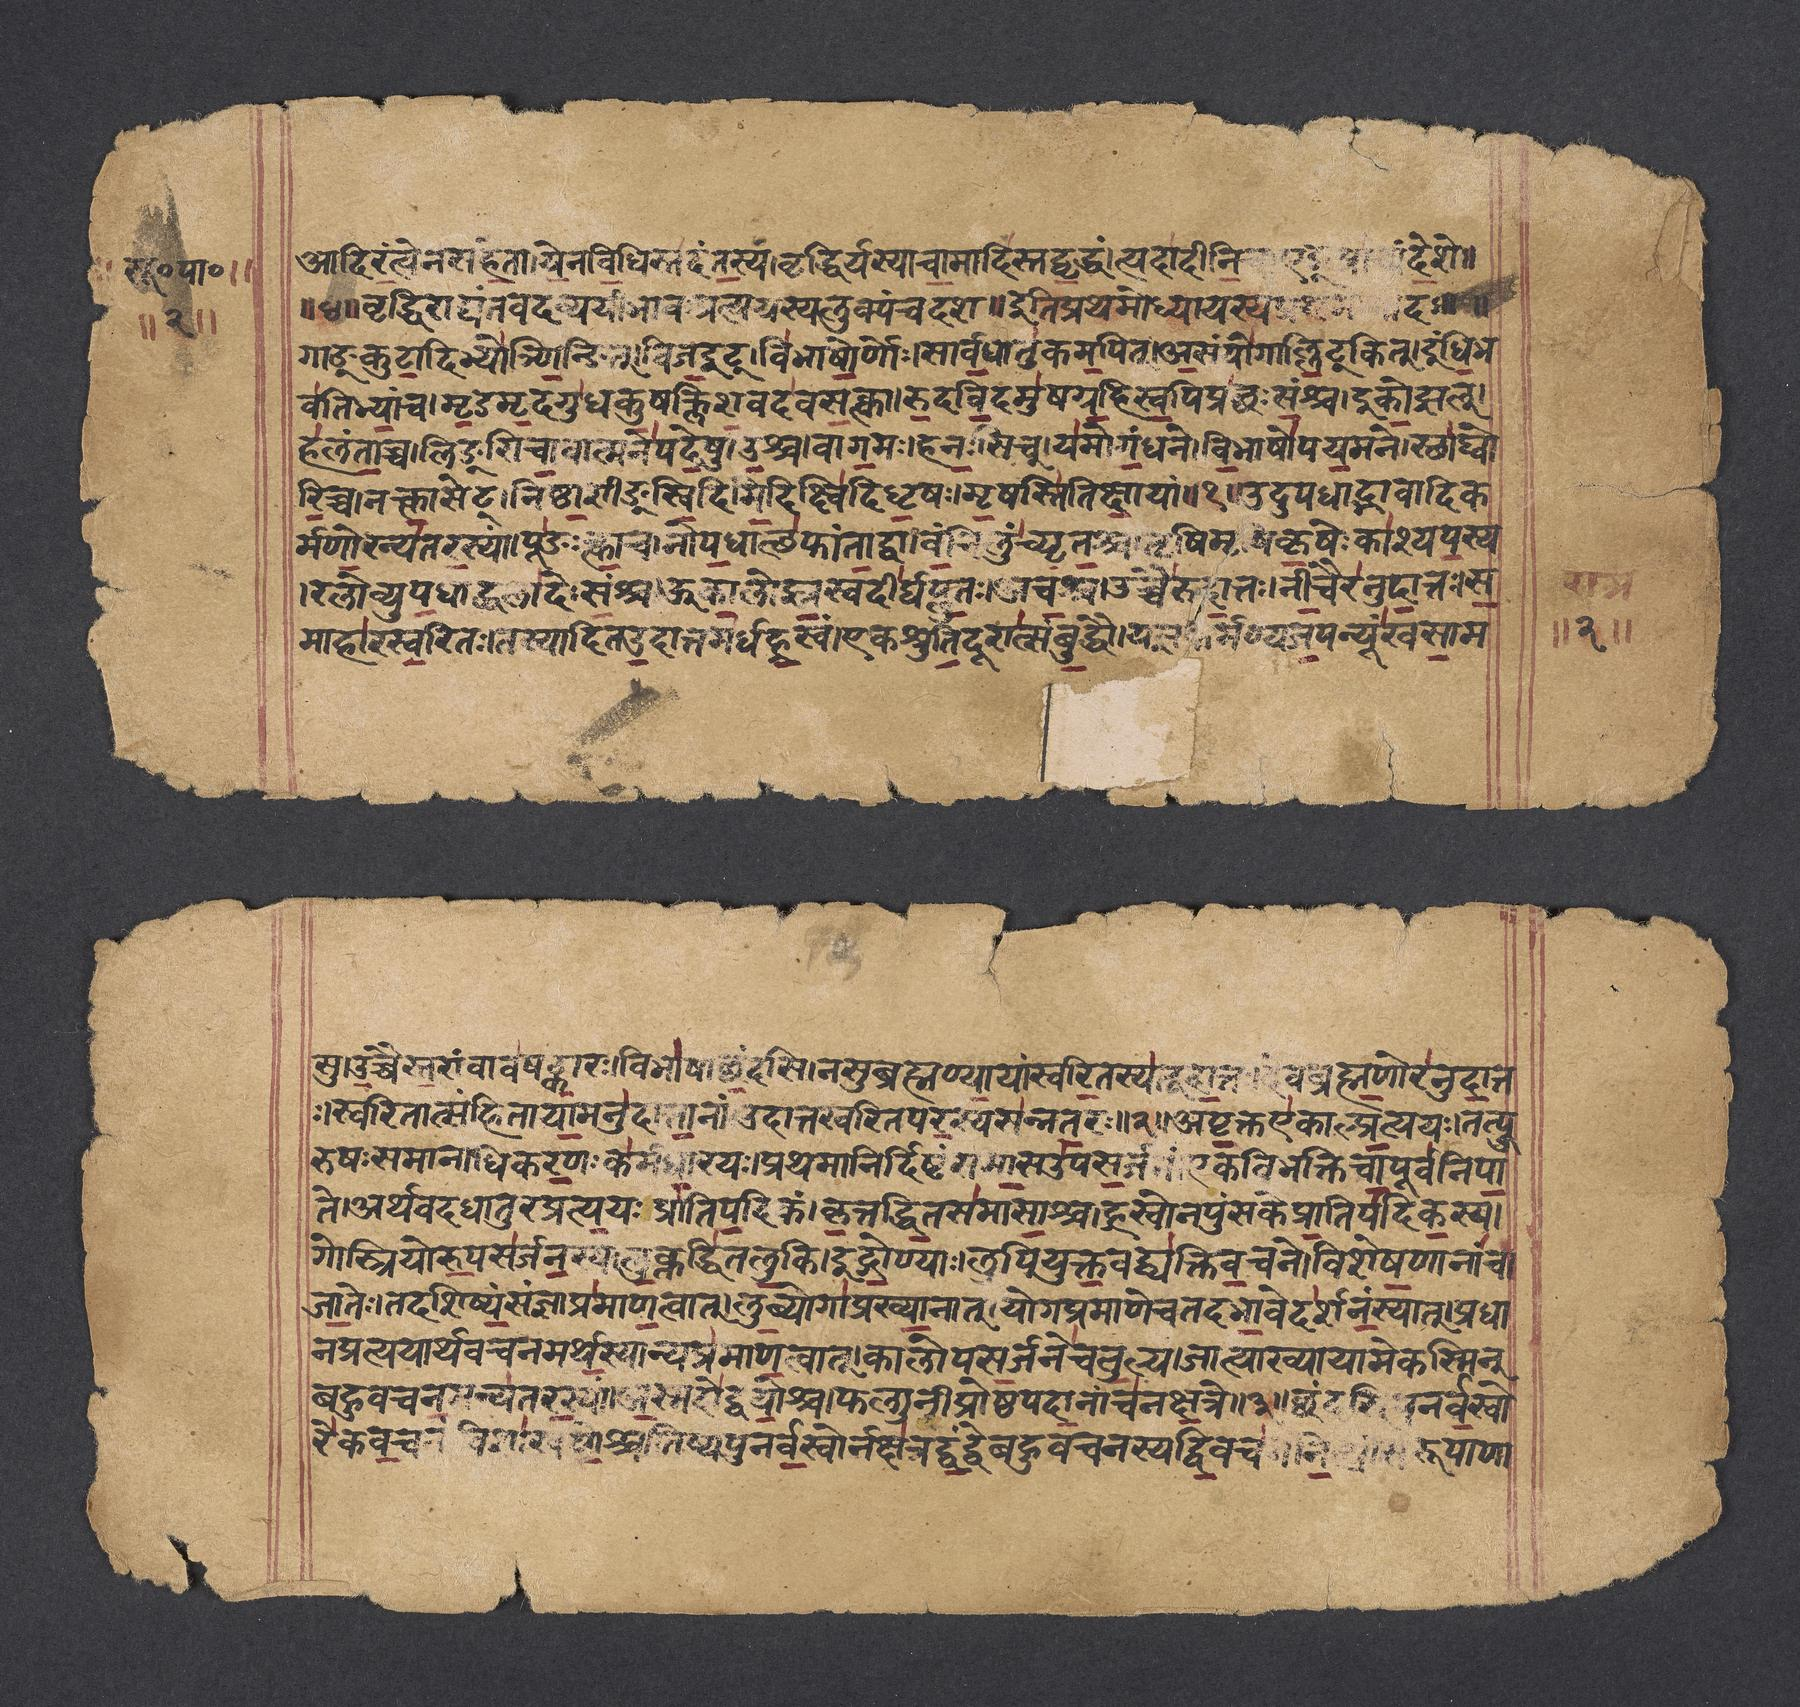 सू०पा०
॥२॥
आदिरंत्येनसहेता।येनविधिस्तदंतस्य।वृद्धिर्यस्याचामादिस्तद्वृद्धं।त्यदादीनि देशे॥
॥४॥वृद्धिराद्यंतवदव्ययीभावप्रत्ययस्यलुक्पंचदश॥इतिप्रथमोध्यायस्यप्रथम
गाङ्कुटादिभ्योञ्णिन्ङित्।विजइट्।विभाषोर्णोः।सार्वधातुकमपित्।असंयोगाल्लिट्कित्।इंधिभ
वतिभ्यांच।मृडमृदगुधकुषक्लिशवदवसःक्त्वा।रुदविदमुषग्रहिस्वपिप्रछःसंश्च।इकोझल्।
हलंताच्च।लिङ्सिचावात्मनेपदेषु।उश्च।वागमः।हनःसिच्।यमोगंधने।विभाषोपयमने।स्थाघ्वो
रिच्च।नक्त्वासेट्।निष्ठाशीङ्स्विदिमिदिक्ष्विदिधृषः।मृषस्तितिक्षायां॥१॥उदुपधाद्भावादिक
र्मणोरन्यतरस्यां।पूङःक्त्वाच।नोपधात्थफांताद्वा।वंचिलुंच्यृतश्च।तृषिमृषिकृषेःकाश्यपस्य
।रलोव्युपधाद्धलादेःसंश्च।ऊकालोज्झ्रस्वदीर्घप्लुतः।अचश्च।उच्चैरुदात्तः।नीचैरनुदात्तः।स
माहारस्वरितः।तस्यादितउदात्तमर्धह्रस्वं।एकश्रुतिदूरात्संबुद्धौ।यज्ञकर्मण्यजपन्यूंखसाम
राम
॥२॥
सु।उच्चैस्तरांवावषट्कारः।विभाषाछंदसि।नसुब्रह्मण्यायांस्वरितस्यतूदात्तः।देवब्रह्मणोरनुदात्त
ः।स्वरितात्संहितायामनुदात्तानां।उदात्तस्वरितपरस्यसन्नतरः॥२॥अपृक्तएकाल्प्रत्ययः।तत्पु
रुषःसमानाधिकरणःकर्मधारयः।प्रथमानिर्दिष्टंसमासउपसर्जनं।एकविभक्तिचापूर्वनिपा
ते।अर्थवदधातुरप्रत्ययःप्रातिपदिकं।कृत्तद्धितसमासाश्च।ह्रस्वोनपुंसकेप्रातिपदिकस्य।
गोस्त्रियोरुपसर्जनस्य।लुक्तद्धितलुकि।इद्गोण्याः।लुपियुक्तवद्व्यक्तिवचने।विशेषणानांचा
जातेः।तदशिष्यंसंज्ञाप्रमाणत्वात्।लुब्योगाप्रख्यानात्।योगप्रमाणेचतदभावेदर्शनंस्यात्।प्रधा
नप्रत्ययार्थवचनमर्थस्यान्यप्रमाणत्वात्।कालोपसर्जनेचतुल्य।जात्याख्यायामेकस्मिन्
बहुवचनमन्यतरस्यां।अस्मदोद्वयोश्च।फल्गुनीप्रोष्ठपदानांचनक्षत्रे॥३॥छंदसिपुनर्वस्वो
रेकवचनं।विशाखयोश्च।तिष्यपुनर्वस्वोर्नक्षत्रद्वंद्वेबहुवचनस्यद्विवच रूपाणा